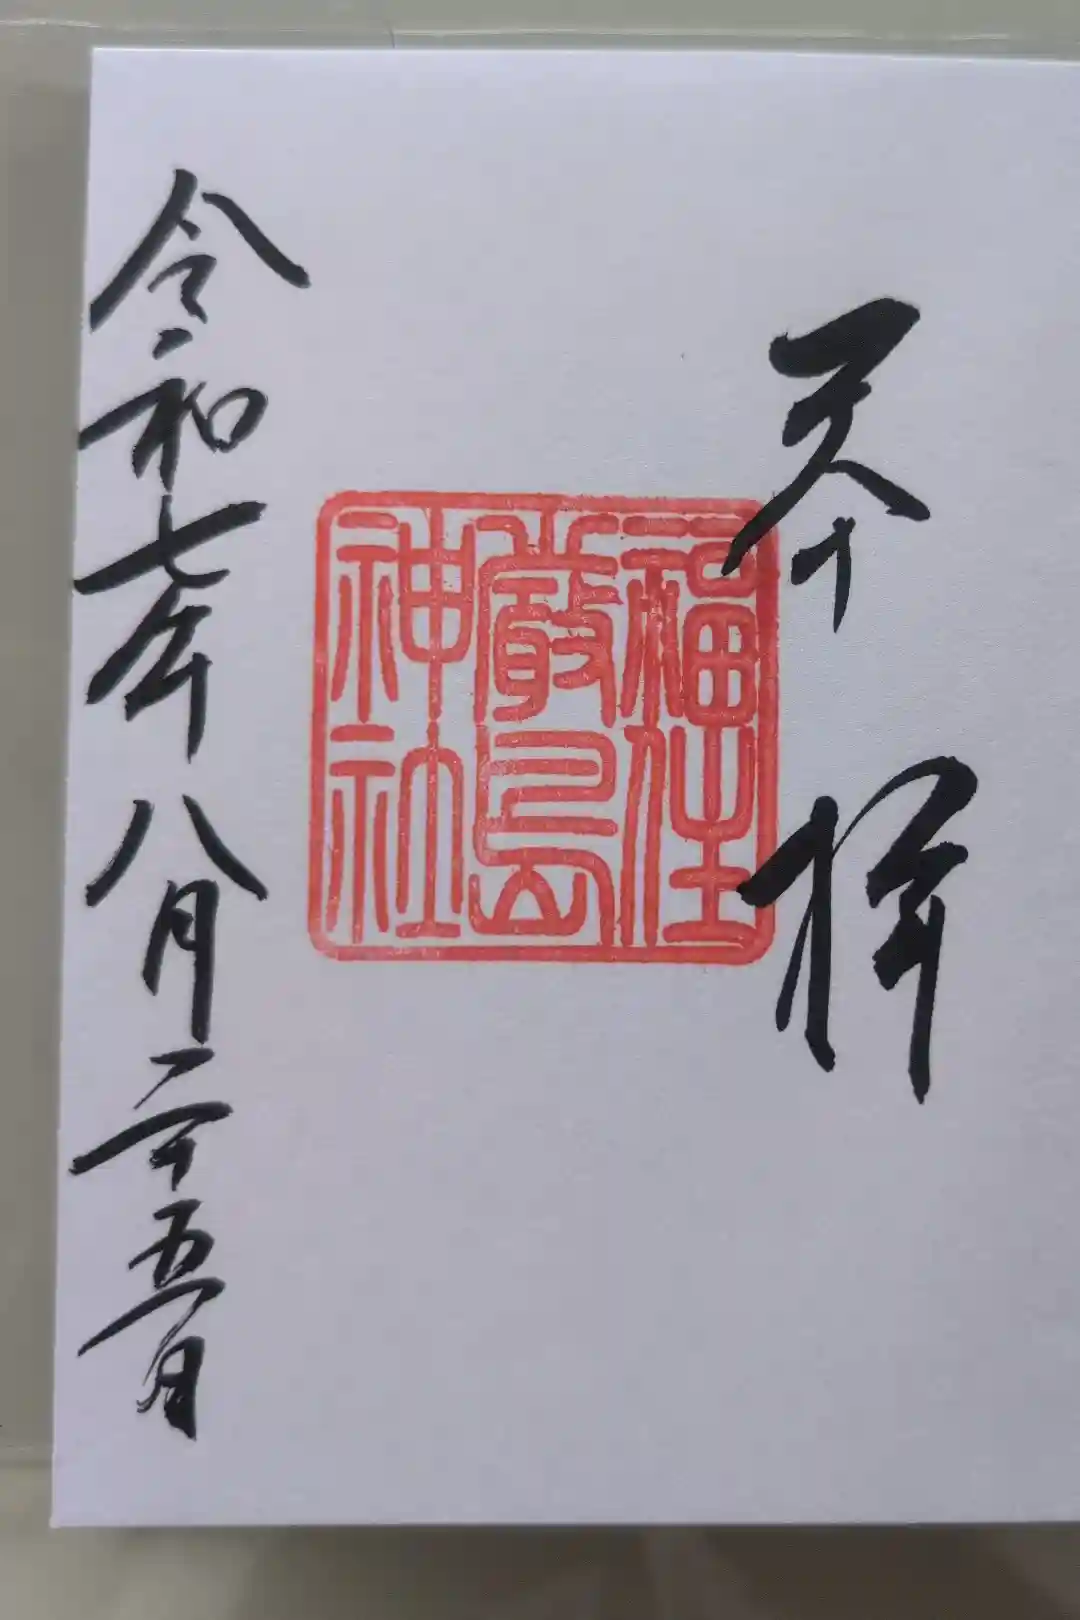 奉拝
福住
嚴島
神社
令和七年八月二十五日